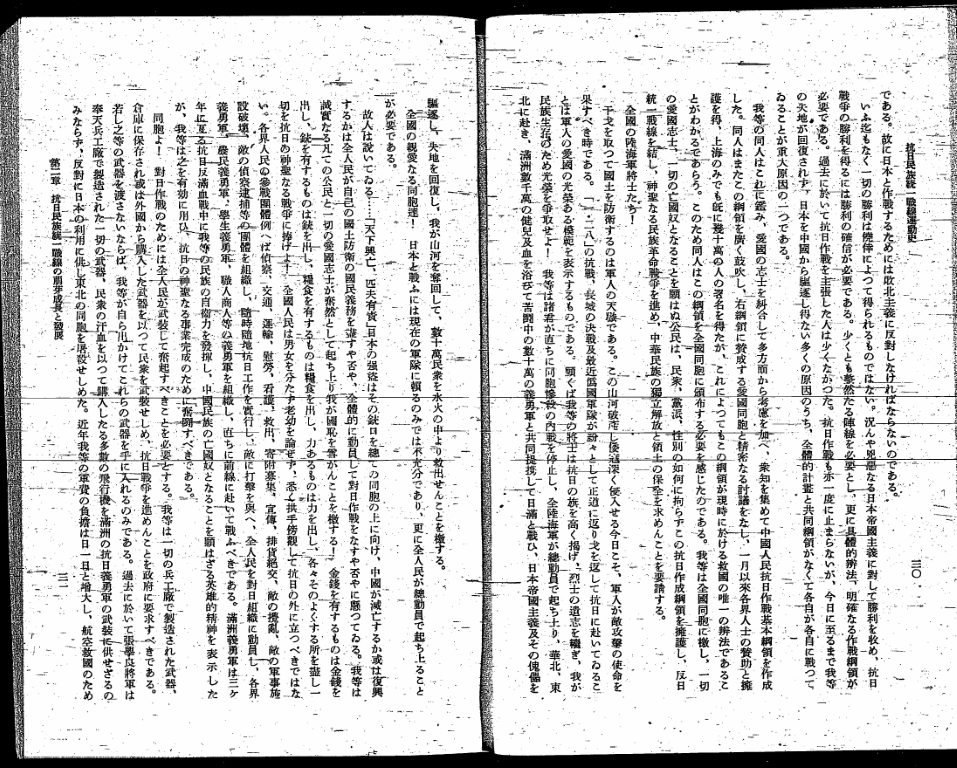 抗日民族統一戰線運動史
三〇
である。故に日本と作戰するためには敗北主義に反對しなければならないのである。
いふ迄もなく一切の勝利は僥倖によつて得られるものではない。況んや兇惡なる日本帝國主義に對して勝利を收め、抗日
戰爭の勝利を得るには勝利の確信が必要である。少くとも整然たる陣線を必要とし、更に具體的辦法、明確なる作戰綱領が
必要である。過去に於いて抗日作戰を主張した人は少くなかつた。抗日作戰も亦一度に止まらないが、今日に至るまで我等
の失地が回復されず、日本を中國から驅逐し得ない多くの原因のうち、全體的計畫と共同綱領がなくて各自が各自に戰つて
ゐることが重大原因の一つである。
我等の同人はこれに鑑み、愛國の志士を糾合して多方面から考慮を加へ、衆知を集めて中國人民抗日作戰基本綱領を作成
した。同人はまたこの綱領を廣く鼓吹し、右綱領に贊成する愛國同胞と精密なる討議をなし、一月以來各界人士の贊助と擁
護を得、上海のみでも旣に幾十萬の人の署名を得たが、これによつてもこの綱領が現時に於ける救國の唯一の辦法であるこ
とがわかるであらう。このため同人はこの綱領を全國同胞に頒布する必要を感じたのである。我等は全國同胞に檄し、一切
の愛國志士、一切の亡國奴となることを願はぬ公民は、民衆、黨派、性別の如何に拘らずこの抗日作成綱領を擁護し、反日
統一戰線を結し、神聖なる民族革命戰爭を進め、中華民族の獨立解放と領土の保全を求めんことを要請する。
全國の陸海軍將士たち！
干戈を取つて國土を防衛するのは軍人の天職である。この山河破壞し倭寇深く侵入せる今日こそ、軍人が敵攻擊の使命を
果すべき時である。「一・二八」の抗戰、長城の決戰及最近舊國軍隊が紛々として正道に返り戈を返して抗日に赴いてゐるこ
とは軍人の愛國の光榮ある模範を表示するものである。願くば我等の將士は抗日の族を高く揭げ、烈士の遺志を繼ぎ、我が
民族生存のため光榮を爭取せよ！　我等は諸君が直ちに同胞慘殺の內戰を停止し、全陸海軍が總動員で起ち上り、華北、東
北に赴き、滿洲數千萬の健兒及血を浴びて苦鬪中の數十萬の義勇軍と共同提携して日滿と戰ひ、日本帝國主義及その傀儡を
驅逐し、失地を回復し、我が山河を奪回して、數十萬民衆を水火の中より救出せんことを檄する。
全國の親愛なる同胞達！　日本と戰ふには現在の軍隊に賴るのみでは不充分であり、更に全人民が總動員で起ち上ること
が必要である。
故人は說いてゐる……「天下興亡、匹夫有責」日本の强盜はその銃口を總ての同胞の上に向け、中國が滅亡するか或は復興
するかは全人民が自己の國土防衛の國民義務を盡すや否や、全體的に動員して對日作戰をなすや否に懸つてゐる。我等は
誠實なる凡ての公民と一切の愛國志士が奮然として起ち上り我が國恥を雪がんことを檄する！　金錢を有するものは金錢を
出し、銃を有するものは銃を出し、糧食を有するものは糧食を出し、力あるものは力を出し、各々そのよくする所を盡し一
切を抗日の神聖なる戰爭に捧げよ！　全國人民は男女を分たず老幼を論ぜず、悉く拱手傍觀して抗日の外に立つべきではな
い。各界人民の參戰團體例へば偵察、交通、運輸、慰勞、看護、救出、寄附募集、宣傳、排貨絕交、敵の擾亂、敵の軍事施
設破壞、敵の偵察逮捕等の團體を組織し、隨時隨地抗日工作を實行し、敵に打擊を與へ、全人民を對日組織に動員し、各界
義勇軍、農民義勇軍、學生義勇軍、職人商人等の義勇軍を組織し、直ちに前線に赴いて戰ふべきである。滿洲義勇軍は三ヶ
年に亙る抗日反滿血戰中に我等の民族の自衛力を發揮し、中國民族の亡國奴となることを願はざる英雄的精神を表示した
が、我等は之を有効に用ひ、抗日の神聖なる事業完成のために奮鬪すべきである。
同胞よ！　對日作戰のためには全人民が武裝して奮起すべきことを必要とする。我等は一切の兵工廠で製造された武器、
倉庫に保存され或は外國から購入した武器を以つて民衆を武裝せしめ、抗日戰爭を進めんことを政府に要求すべきである。
若し之等の武器を渡さないならば、我等が自ら出かけてこれらの武器を手に入れるのみである。過去に於いて張學良將軍は
奉天兵工廠で製造された一切の武器、民衆の汗血を以つて購入したる多數の飛行機を滿洲の抗日義勇軍の武裝に供せざるの
みならず、反對に日本の利用に供し東北の同胞を屠殺せしめた。近年我等の軍費の負擔は日一日と增大し、航空救國のため
第二章　抗日民族統一戰線の萌芽成長と發展
三一